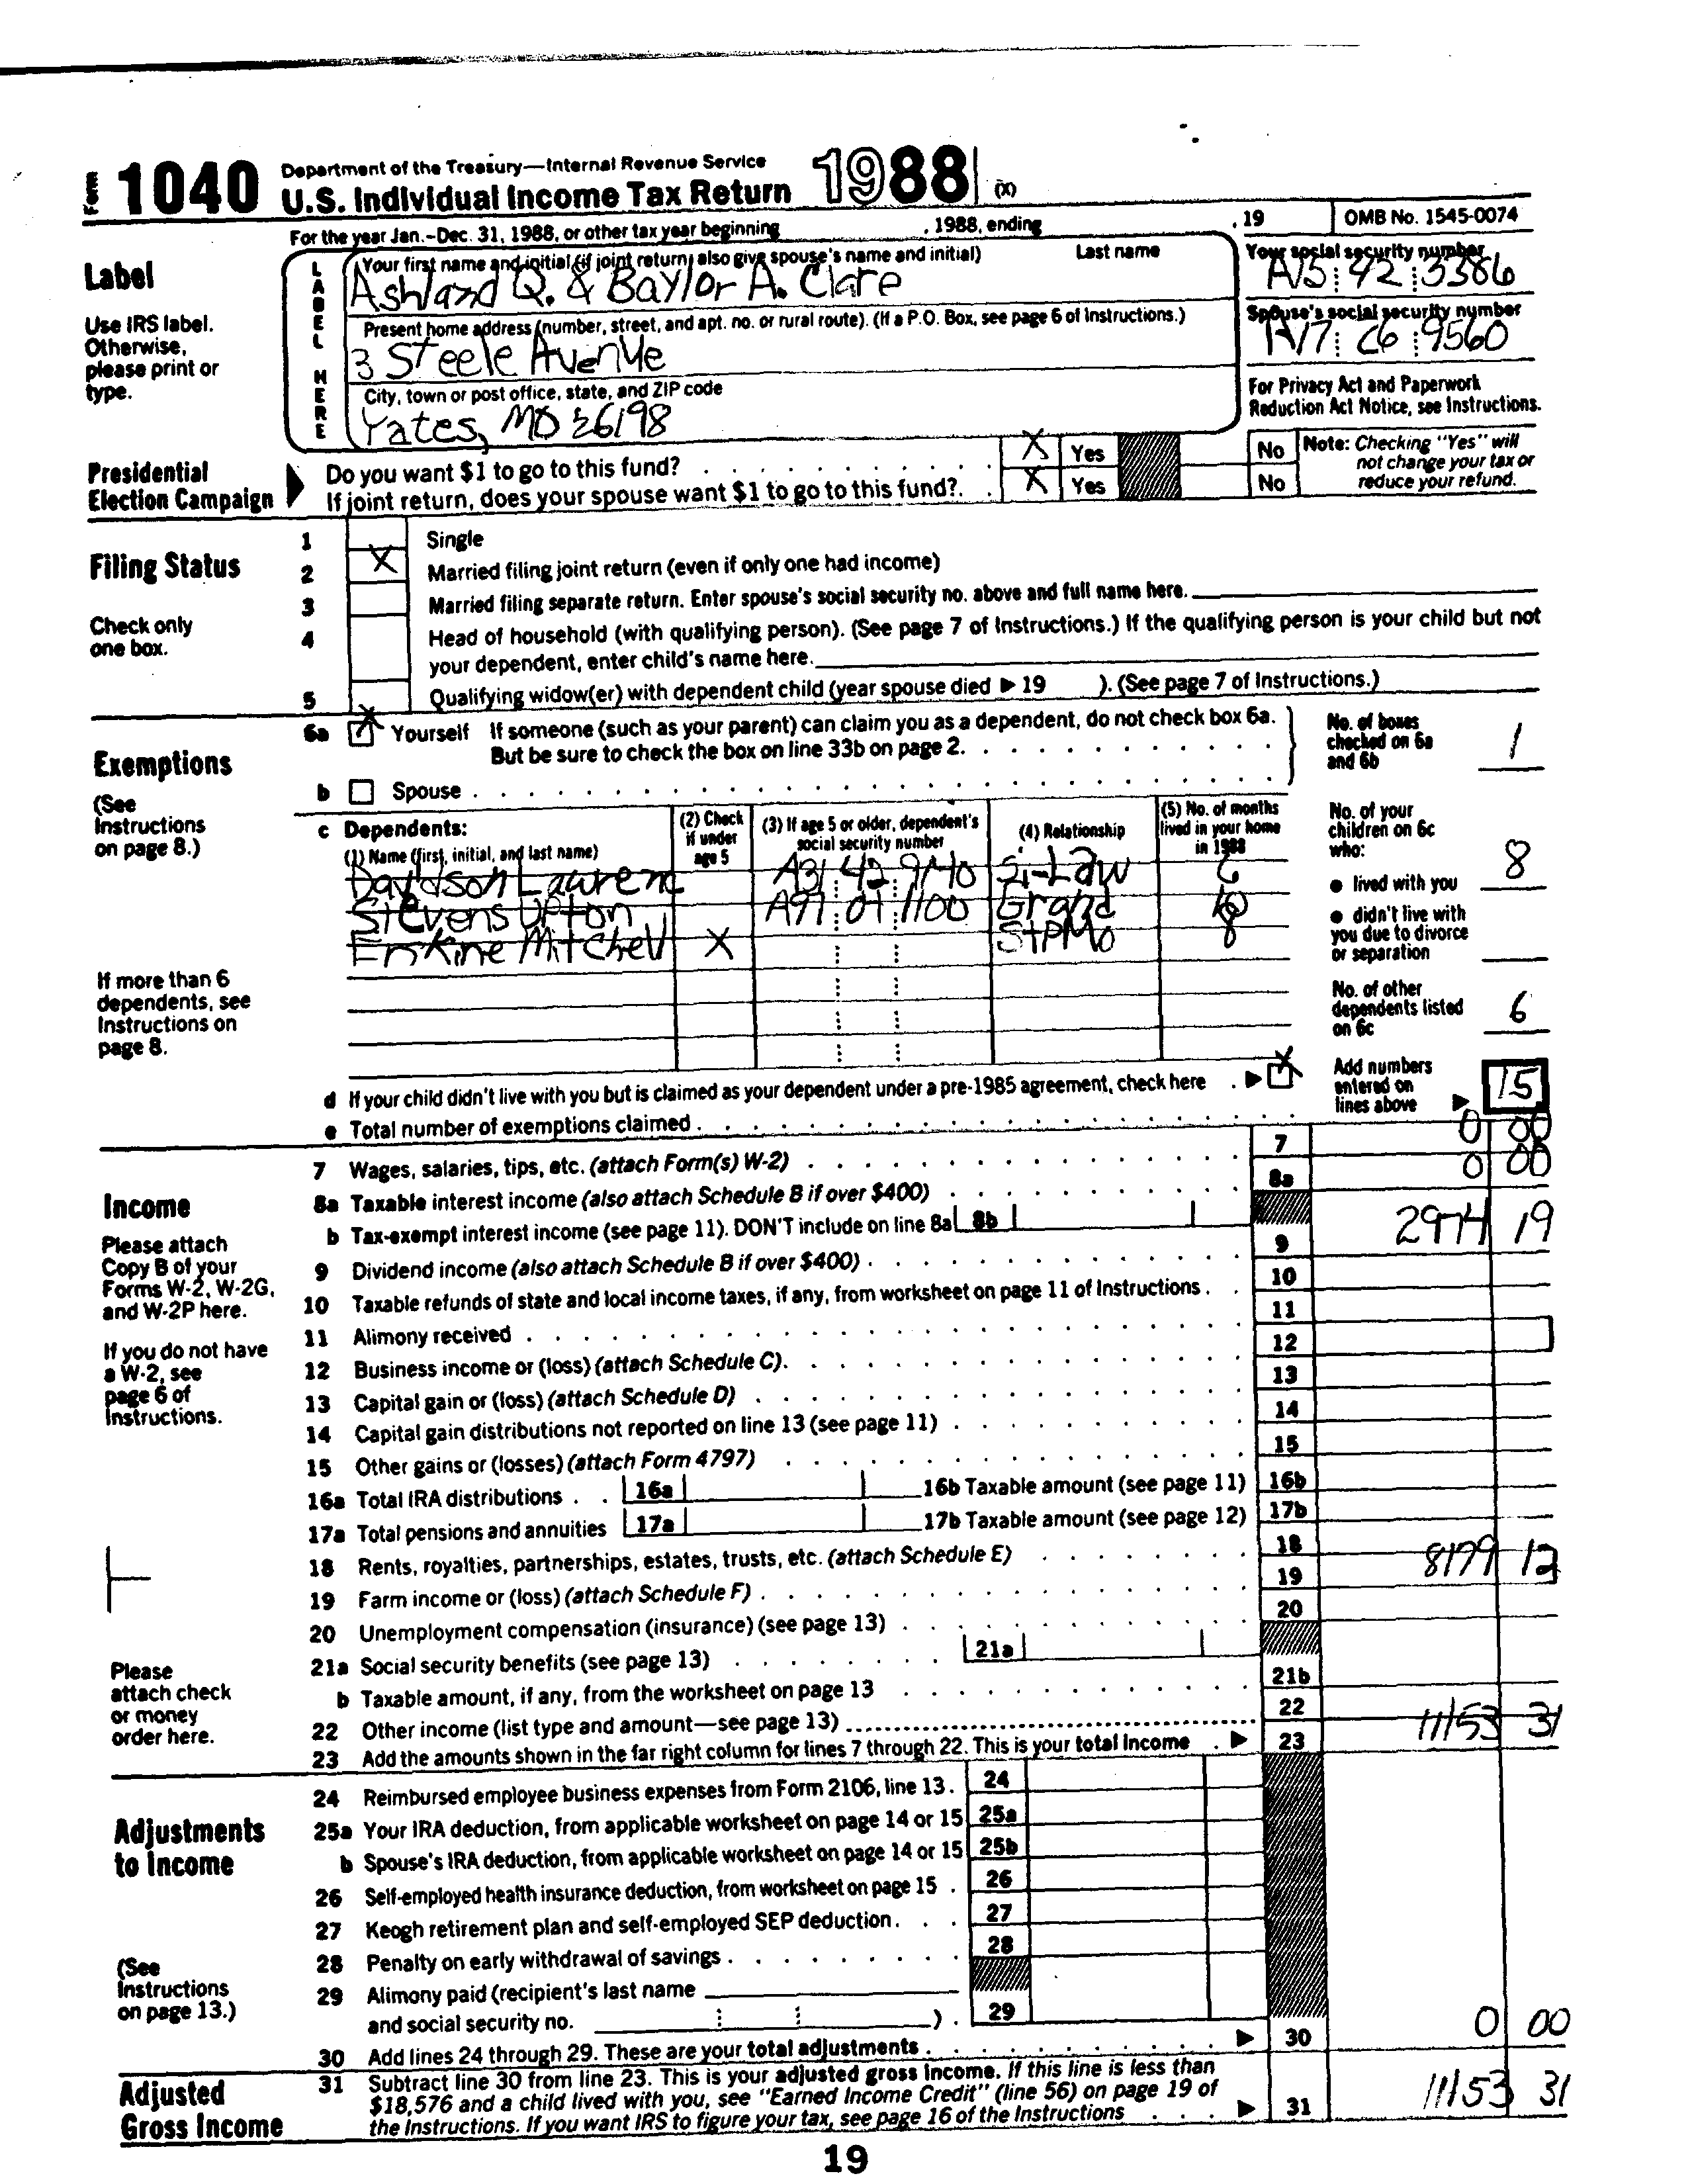 Form 1040 Department of the Treasury—Internal Revenue Service
U.S. Individual Income Tax Return 1988 (X)
For the year Jan.-Dec. 31, 1988, or other tax year beginning , 1988, ending , 19 OMB No. 1545-0074
Label
Use IRS label.
Otherwise,
please print or
type.
LABEL HERE
Your first name and initial (if joint return, also give spouse's name and initial) Last name
Ashland Q. & Baylor A. Clare
Your social security number
A15 42 3386
Present home address (number, street, and apt. no. or rural route). (If a P.O. Box, see page 6 of Instructions.)
3 Steele Avenue
Spouse's social security number
A17 C6 9560
City, town or post office, state, and ZIP code
Yates, MO 26198
For Privacy Act and Paperwork
Reduction Act Notice, see Instructions.
Presidential
Election Campaign
Do you want $1 to go to this fund? X Yes No
If joint return, does your spouse want $1 to go to this fund?. X Yes No
Note: Checking "Yes" will
not change your tax or
reduce your refund.
Filing Status
Check only
one box.
1 Single
2 X Married filing joint return (even if only one had income)
3 Married filing separate return. Enter spouse's social security no. above and full name here.
4 Head of household (with qualifying person). (See page 7 of Instructions.) If the qualifying person is your child but not
your dependent, enter child's name here.
5 Qualifying widow(er) with dependent child (year spouse died ▶ 19 ). (See page 7 of Instructions.)
Exemptions
(See
Instructions
on page 8.)
If more than 6
dependents, see
Instructions on
page 8.
6a X Yourself If someone (such as your parent) can claim you as a dependent, do not check box 6a.
But be sure to check the box on line 33b on page 2.
b Spouse
No. of boxes
checked on 6a
and 6b 1
c Dependents:
(1) Name (first, initial, and last name)
(2) Check
if under
age 5
(3) If age 5 or older, dependent's
social security number
(4) Relationship
(5) No. of months
lived in your home
in 1988
Davidson Lauren A31 42 9140 Si-Law 6
Stevens Upton A91 01 1100 Grand 10
Erskine Mitchell X StPMo 8
No. of your
children on 6c
who:
● lived with you 8
● didn't live with
you due to divorce
or separation
No. of other
dependents listed
on 6c 6
d If your child didn't live with you but is claimed as your dependent under a pre-1985 agreement, check here ▶ X
e Total number of exemptions claimed
Add numbers
entered on
lines above ▶ 15
Income
Please attach
Copy B of your
Forms W-2, W-2G,
and W-2P here.
If you do not have
a W-2, see
page 6 of
Instructions.
Please
attach check
or money
order here.
7 Wages, salaries, tips, etc. (attach Form(s) W-2) 7 0 00
8a Taxable interest income (also attach Schedule B if over $400) 8a 0 00
b Tax-exempt interest income (see page 11). DON'T include on line 8a 8b
9 Dividend income (also attach Schedule B if over $400) 9 2974 19
10 Taxable refunds of state and local income taxes, if any, from worksheet on page 11 of Instructions 10
11 Alimony received 11
12 Business income or (loss) (attach Schedule C) 12
13 Capital gain or (loss) (attach Schedule D) 13
14 Capital gain distributions not reported on line 13 (see page 11) 14
15 Other gains or (losses) (attach Form 4797) 15
16a Total IRA distributions 16a 16b Taxable amount (see page 11) 16b
17a Total pensions and annuities 17a 17b Taxable amount (see page 12) 17b
18 Rents, royalties, partnerships, estates, trusts, etc. (attach Schedule E) 18 8179 12
19 Farm income or (loss) (attach Schedule F) 19
20 Unemployment compensation (insurance) (see page 13) 20
21a Social security benefits (see page 13) 21a
b Taxable amount, if any, from the worksheet on page 13 21b
22 Other income (list type and amount—see page 13) 22
23 Add the amounts shown in the far right column for lines 7 through 22. This is your total income ▶ 23 11153 31
Adjustments
to Income
(See
Instructions
on page 13.)
24 Reimbursed employee business expenses from Form 2106, line 13. 24
25a Your IRA deduction, from applicable worksheet on page 14 or 15 25a
b Spouse's IRA deduction, from applicable worksheet on page 14 or 15 25b
26 Self-employed health insurance deduction, from worksheet on page 15 26
27 Keogh retirement plan and self-employed SEP deduction 27
28 Penalty on early withdrawal of savings 28
29 Alimony paid (recipient's last name
and social security no. ) 29
30 Add lines 24 through 29. These are your total adjustments ▶ 30 0 00
Adjusted
Gross Income
31 Subtract line 30 from line 23. This is your adjusted gross income. If this line is less than
$18,576 and a child lived with you, see "Earned Income Credit" (line 56) on page 19 of
the Instructions. If you want IRS to figure your tax, see page 16 of the Instructions ▶ 31 11153 31
19